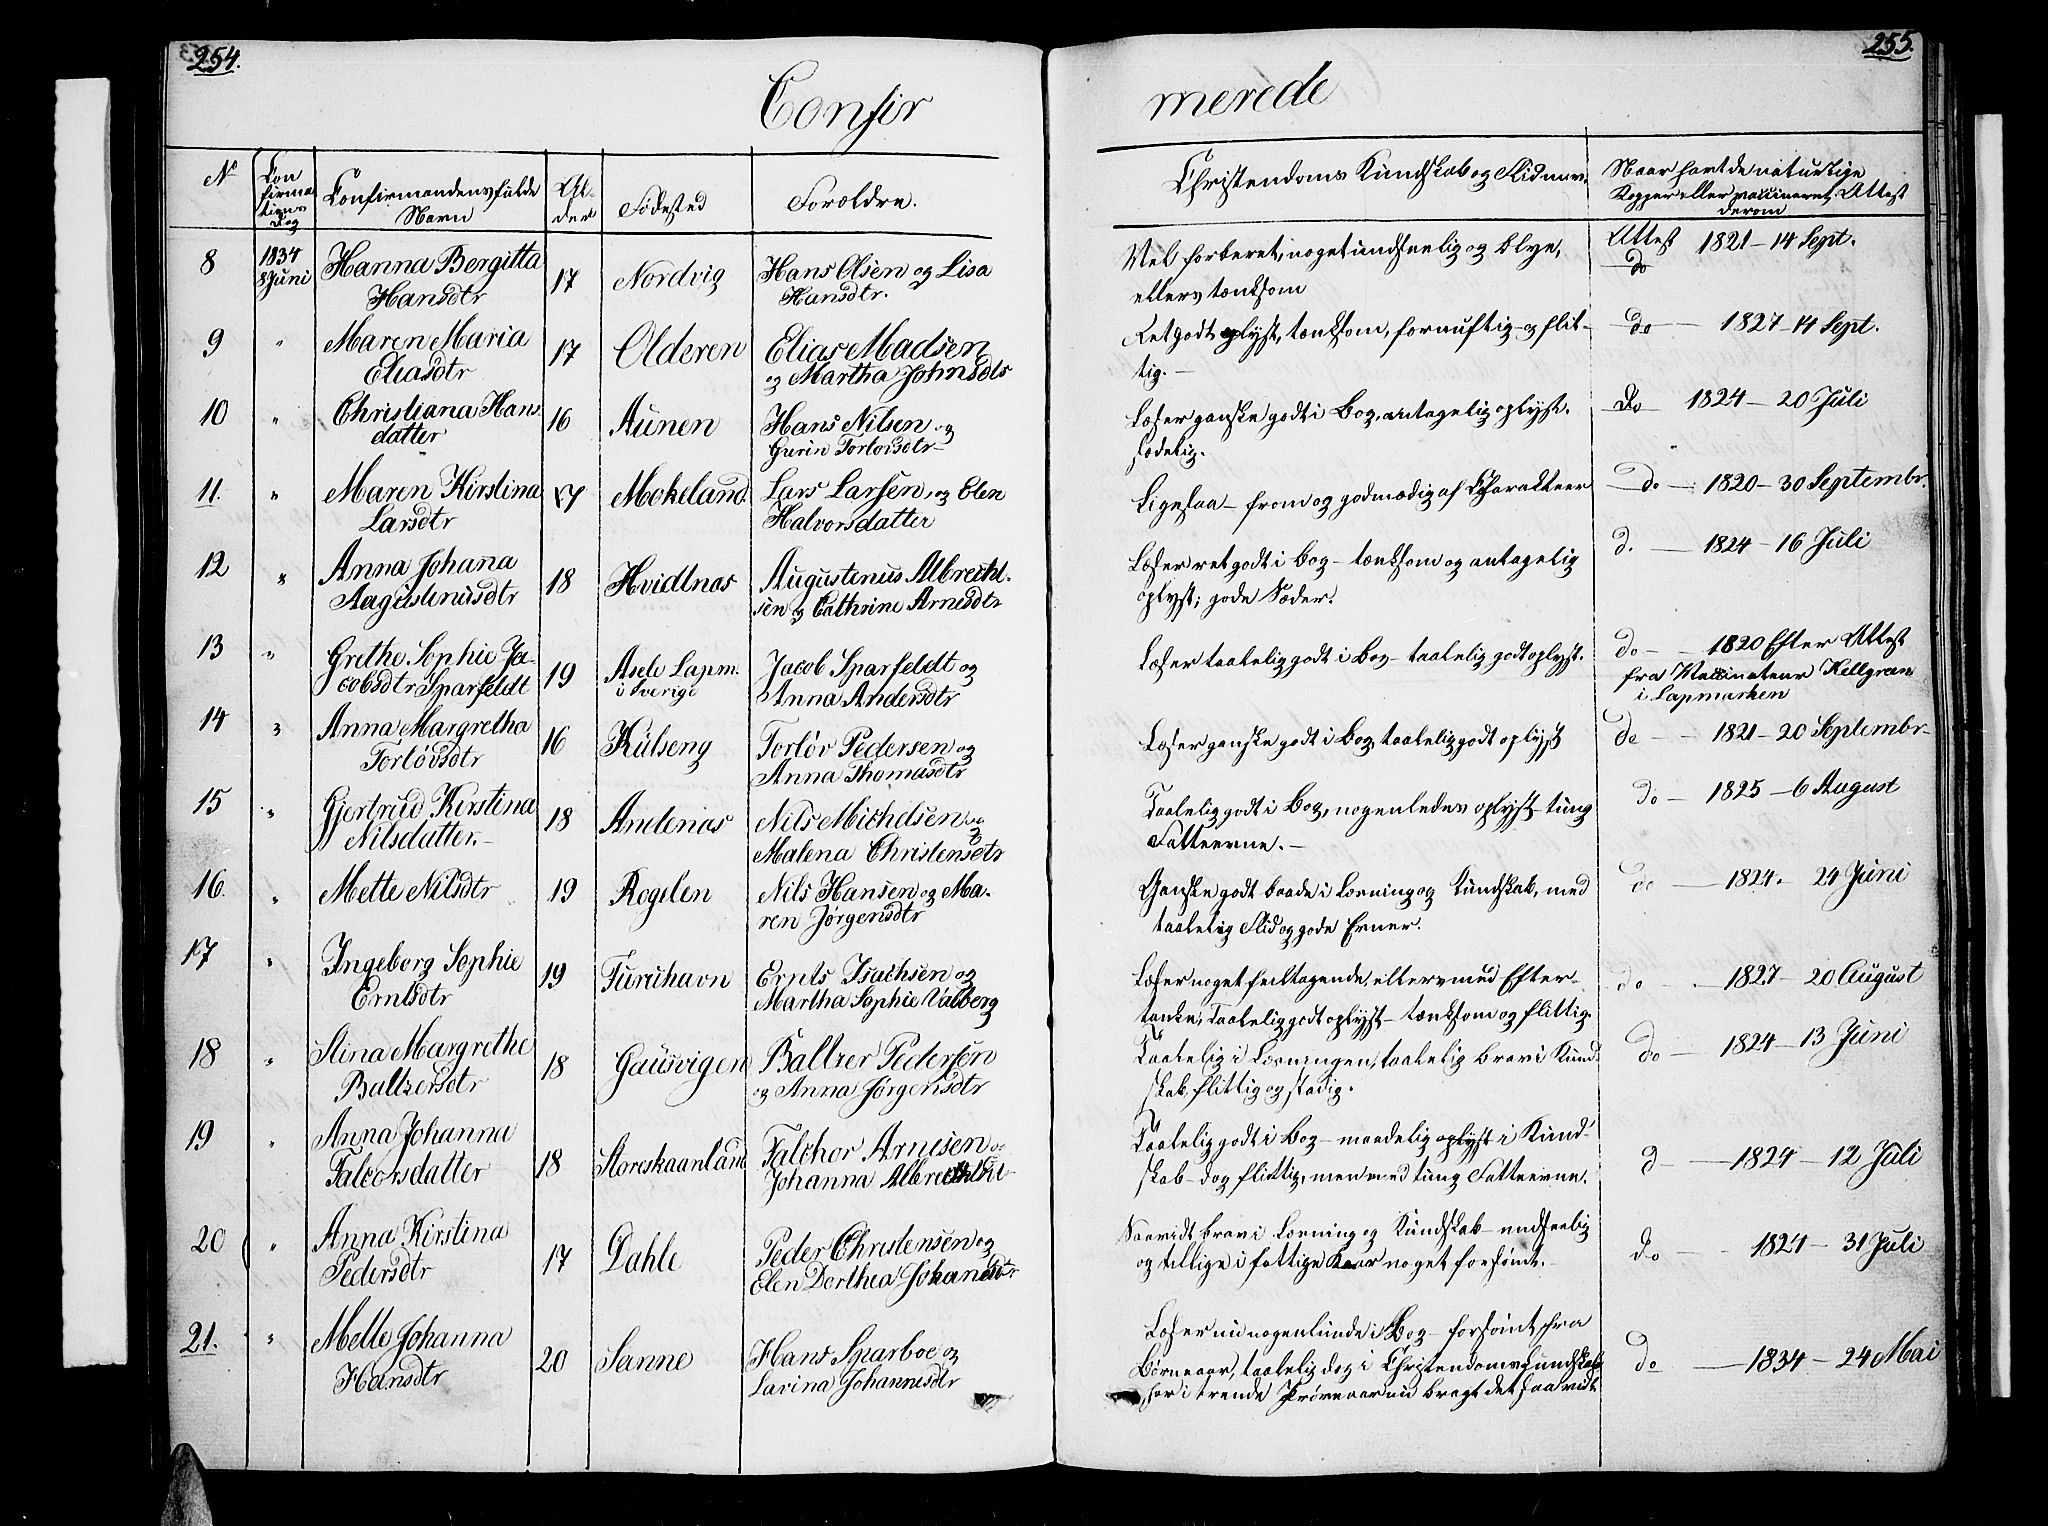 254.
255.
Confir
merede
No
Con
firma
tions
Dag
Confirmandens fulde
Navn
Al-
der
Fødested
Foroldre.
Christendoms Kundskab og Flid m. v.
Naar havt de naturlige
Kopper eller vaccineret. Attest
derom
8
1834
8 Juni
Hanna Bergitta
Hansdtr
17
Nordvig
Hans Olsen og Lisa
Hansdtr.
Vel forberet, noget undseelig og blye,
ellers tænksom
Attest 1821 - 14 Sept.
do
9
"
Maren Maria
Eliasdtr
17
Olderen
Elias Madsen
og Martha Johnsdtr
Ret godt oplyst, tænksom, fornuftig og flit-
tig. -
do - 1827 - 14 Sept.
10
"
Christiana Hans
datter
16
Aunen
Hans Nilsen og
Gurin Torlovsdtr
Læser ganske godt i Bog, antagelig oplyst.
sædelig.
Do - 1824 - 20 Juli
11.
"
Maren Kirstina
Larsdtr
17
Mokeland
Lars Larsen, og Elen
Halvorsdatter
Ligesaa - from og godmodig af Charakteer
do - 1820 - 30 Septembr.
12
"
Anna Johana
Augustinusdtr
18
Hvidtnas
Augustinus Albrecht-
sen og Cathrine Arnesdtr
Læser ret godt i Bog - tænksom og antagelig
oplyst; gode Sæder.
d. - 1824 - 16 Juli
13
"
Grethe Sophie Ja-
cobsdtr Sparfeldt
19
Asele Lapm.
i Sverige
Jacob Sparfeldt og
Anna Andersdtr
Læser taalelig godt i Bog - taalelig godt oplyst.
do - - 1820 Efter Attest
fra Vaccinateur Kellgren
i Lapmarken
14
"
Anna Margretha
Torlövsdtr
16
Külseng
Torlöv Pedersen og
Anna Thomasdtr
Læser ganske godt i Bog taalelig godt oplyst
do - - 1821 - 20 Septembr-
15
"
Gjertrud Kirstina
Nilsdatter. -
18
Andenas
Nils Michelsen og
Malena Christensdtr
Taalelig godt i Bog, nogenledes oplyst - tung
Fatteevne. -
do - 1825 - 6 August
16.
"
Mette Nilsdtr
19
Rogelen
Nils Hansen og Ma-
ren Jørgensdtr
Ganske godt baade i Læsning og Kundskab, med
taalelig Flid og gode Evner.
do - 1824. 24 Juni
17
"
Ingeborg Sophie
Erntsdtr
19
Furuhavn
Ernts Isachsen og
Martha Sophie Valberg
Læser noget feiltagende, ellers med Efter-
tanke, Taalelig godt oplyst - tænksom og flittig.
do - 1827 - 20 August
18
"
Stina Margrethe
Baltzersdtr
18
Gausvigen
Baltzer Pedersen
og Anna Jørgensdtr
Taalelig i Læsningen, taalelig brav i Kund-
skab, flittig og stadig.
do - 1824 - 13 Juni
19
"
Anna Johanna
Falcorsdatter
18
Storeskaanland
Falchor Arnesen og
Johanna Albrechtsdtr
Taalelig godt i Bog - maadelig oplyst i Kund-
skab - dog flittig, men med tung Fatteevne.
d - 1824 - 12 Juli
20
"
Anna Kirstina
Pedersdtr
17
Dahle
Peder Christensen og
Elen Dorthea Johansdtr
Saavidt brav i Læsning og Kundskab - undseelig
og tillige i fattige Kaar noget forsømt. -
do - - 1824 - 31 Juli
21.
"
Mette Johanna
Hansdtr
20
Sanne
Hans Sparboe og
Lavina Johannesdtr
Læser nu nogenlunde i Bog - forsømt fra
Børneaar, taalelig dog i Christendomskundskab
har i trende Prøveaar nu bragt det saavidt.
do - 1834 - 24 Mai